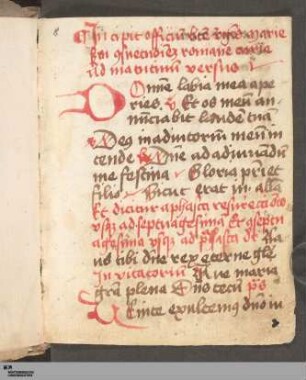 8
Incipit officiu bte vgis marie
scdm 9suetudiez romane curie
Ad matutinum versus
Domine labia mea ape
ries. Et os meu an
nuciabit laude tua
Deus in adiutoriu meu in
tende Dne ad adiuuandu
me festina Gloria pri et
filio Sicut erat in
Et dicitur a pascha
vsqz ad septuagesima Et a septu
agesima vsqz ad pascha dr La
us tibi dne rex eterne gle
Inuitatoriu Aue maria
gra plena Dns tecu ps
Venite exultemus dno iu